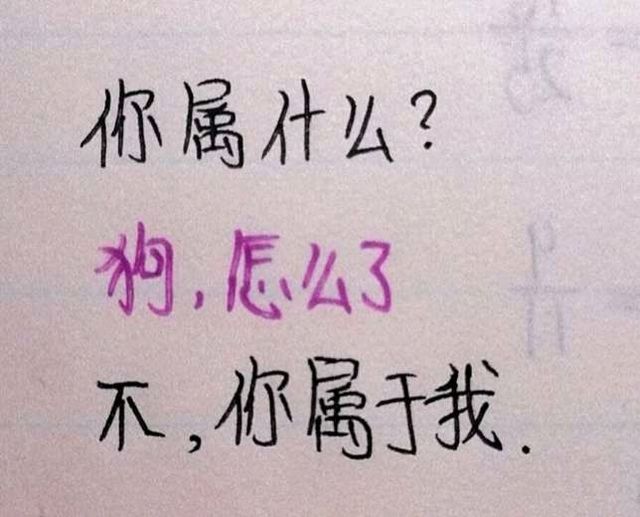 你属什么?
狗,怎么了
不,你属于我.